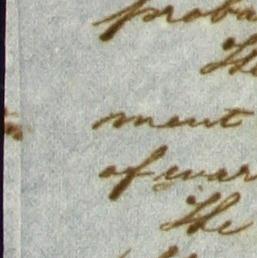 proba
The
ment
of war
The